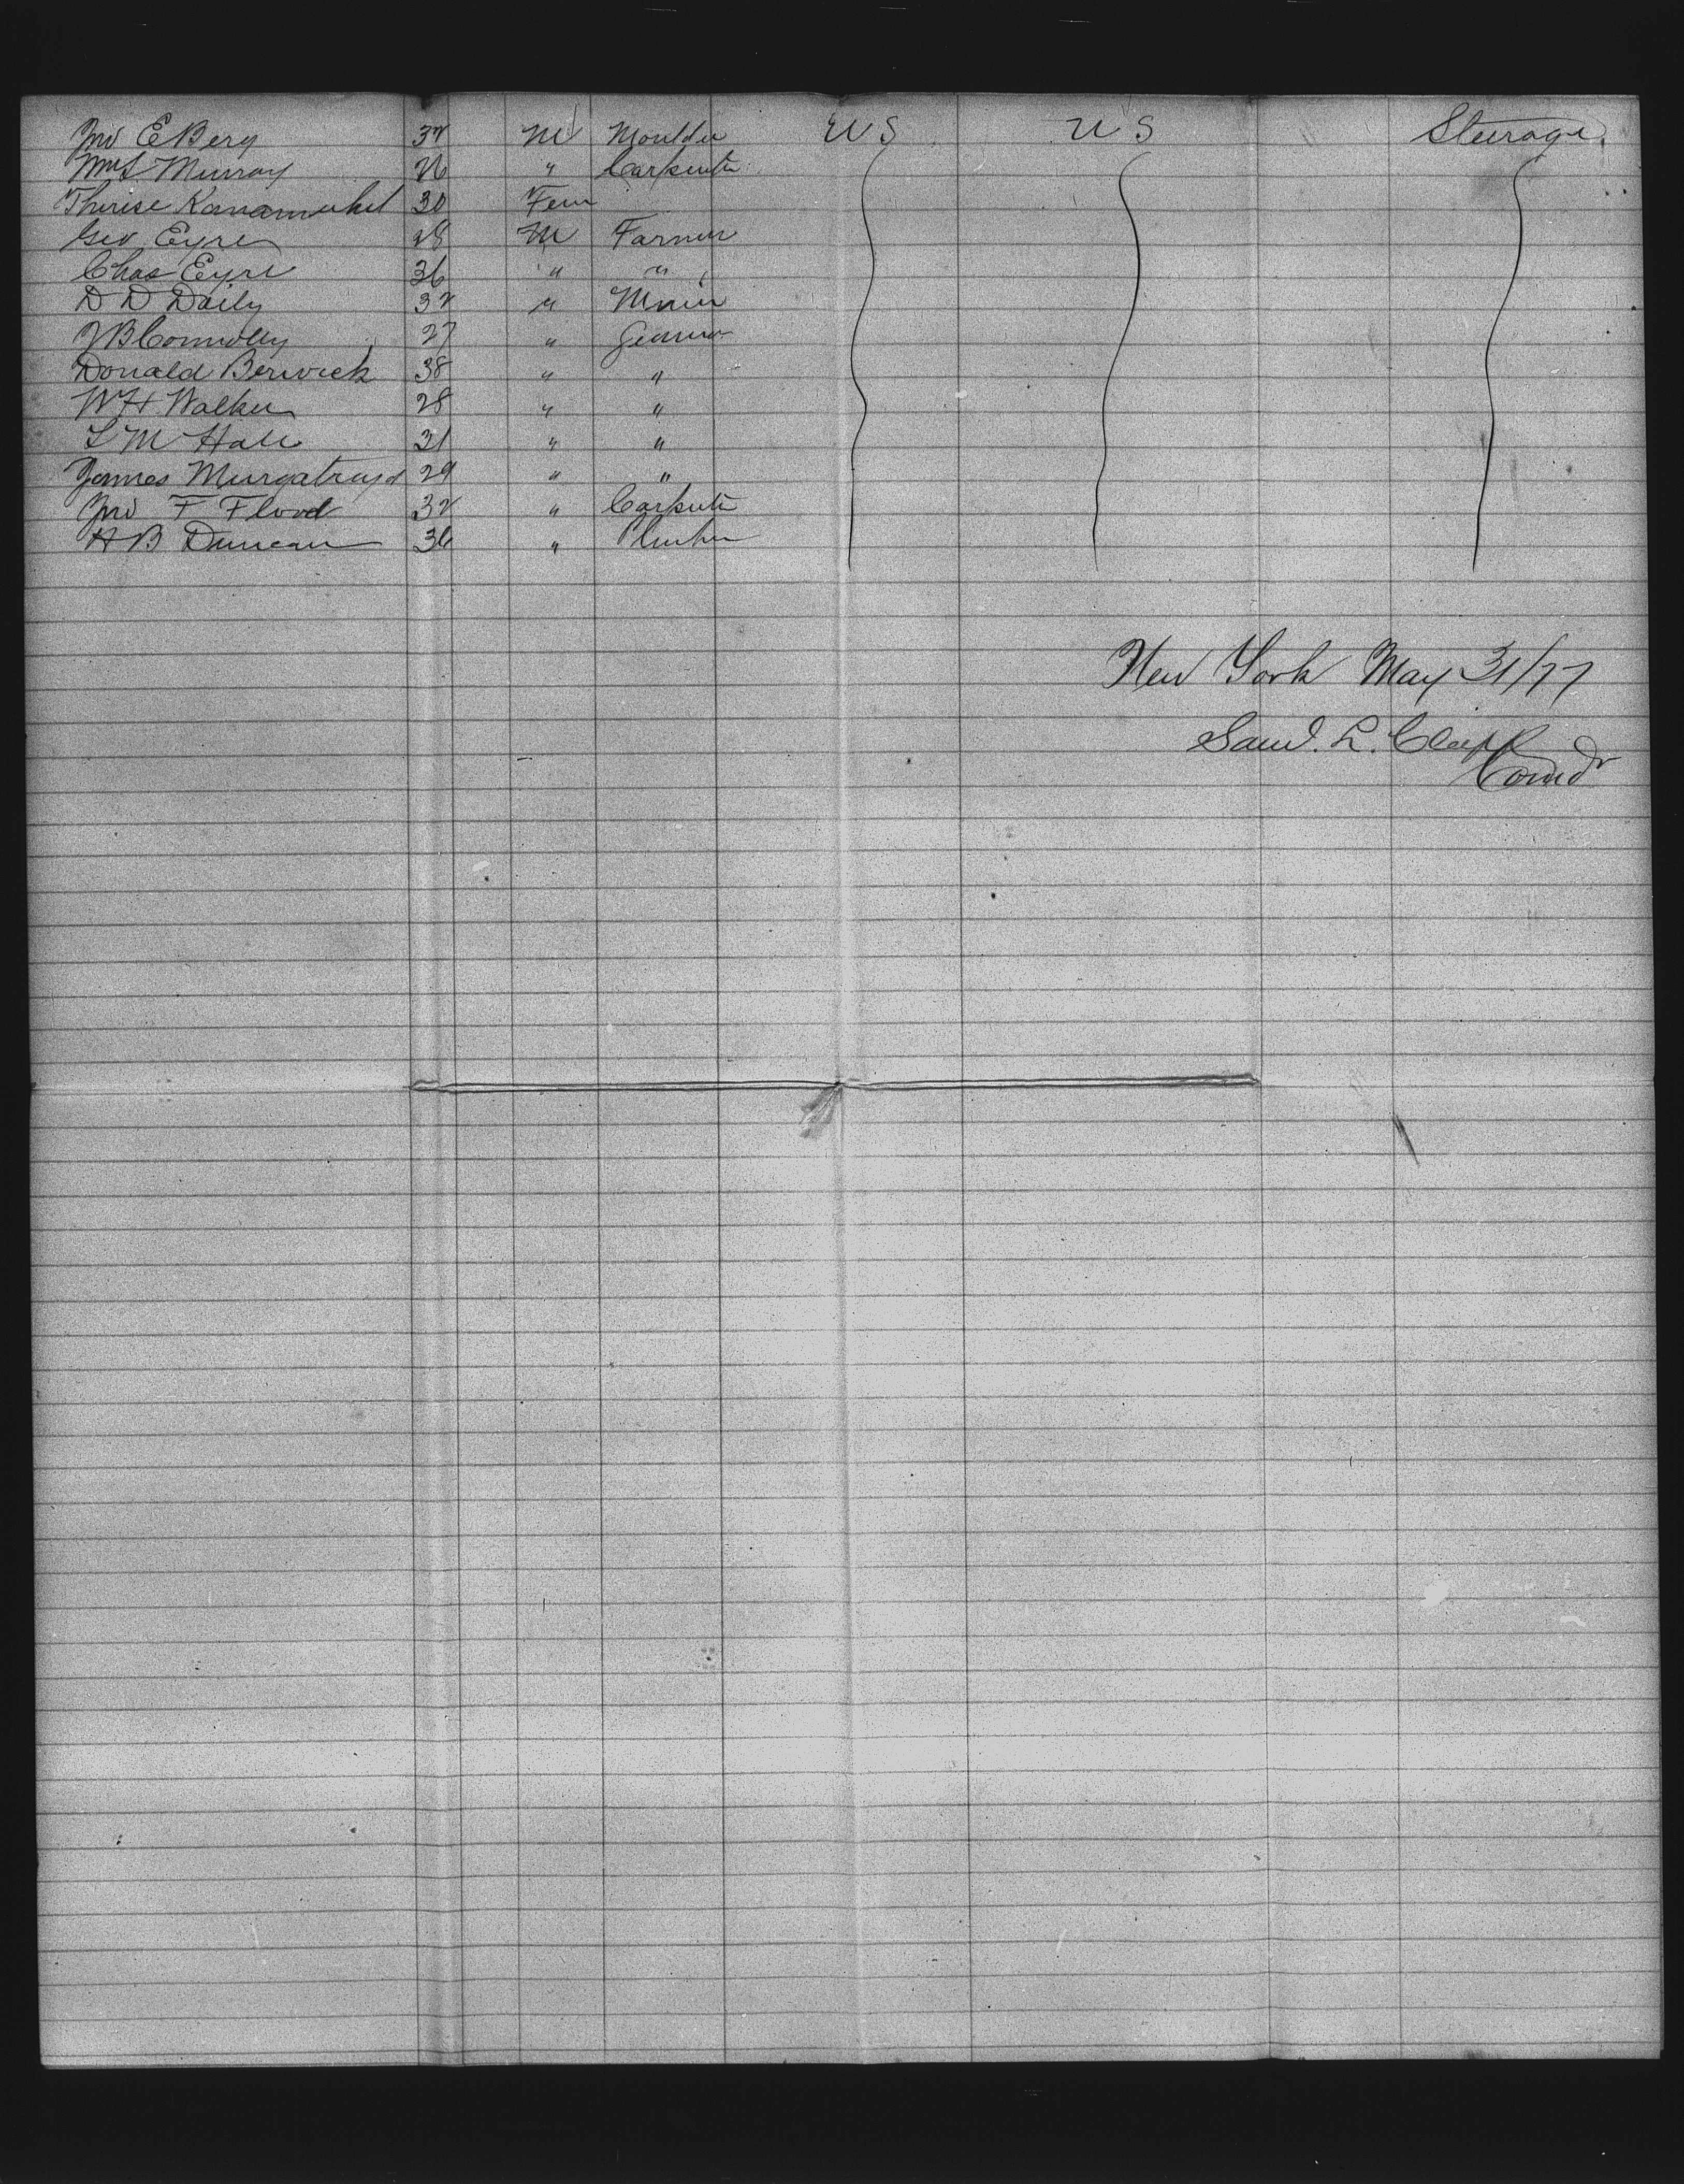 Jno E Berg 32 M Moulder U S U S Steerage
Wm L Murray 26 " Carpenter
Therese 30 Fem
Geo Eyre 28 M Farmer
Chas Eyre 36 " "
D D Daily 32 " Miner
J B Connolly 27 "
Donald Berwick 38 " "
W H Walker 28 " "
L M Hall 31 " "
James Murgatroyd 29 " "
Jno F Flood 32 " Carpenter
H B Duncan 36 " Plumber
New York May 31/77
Saml. L. Clapp
Comdr